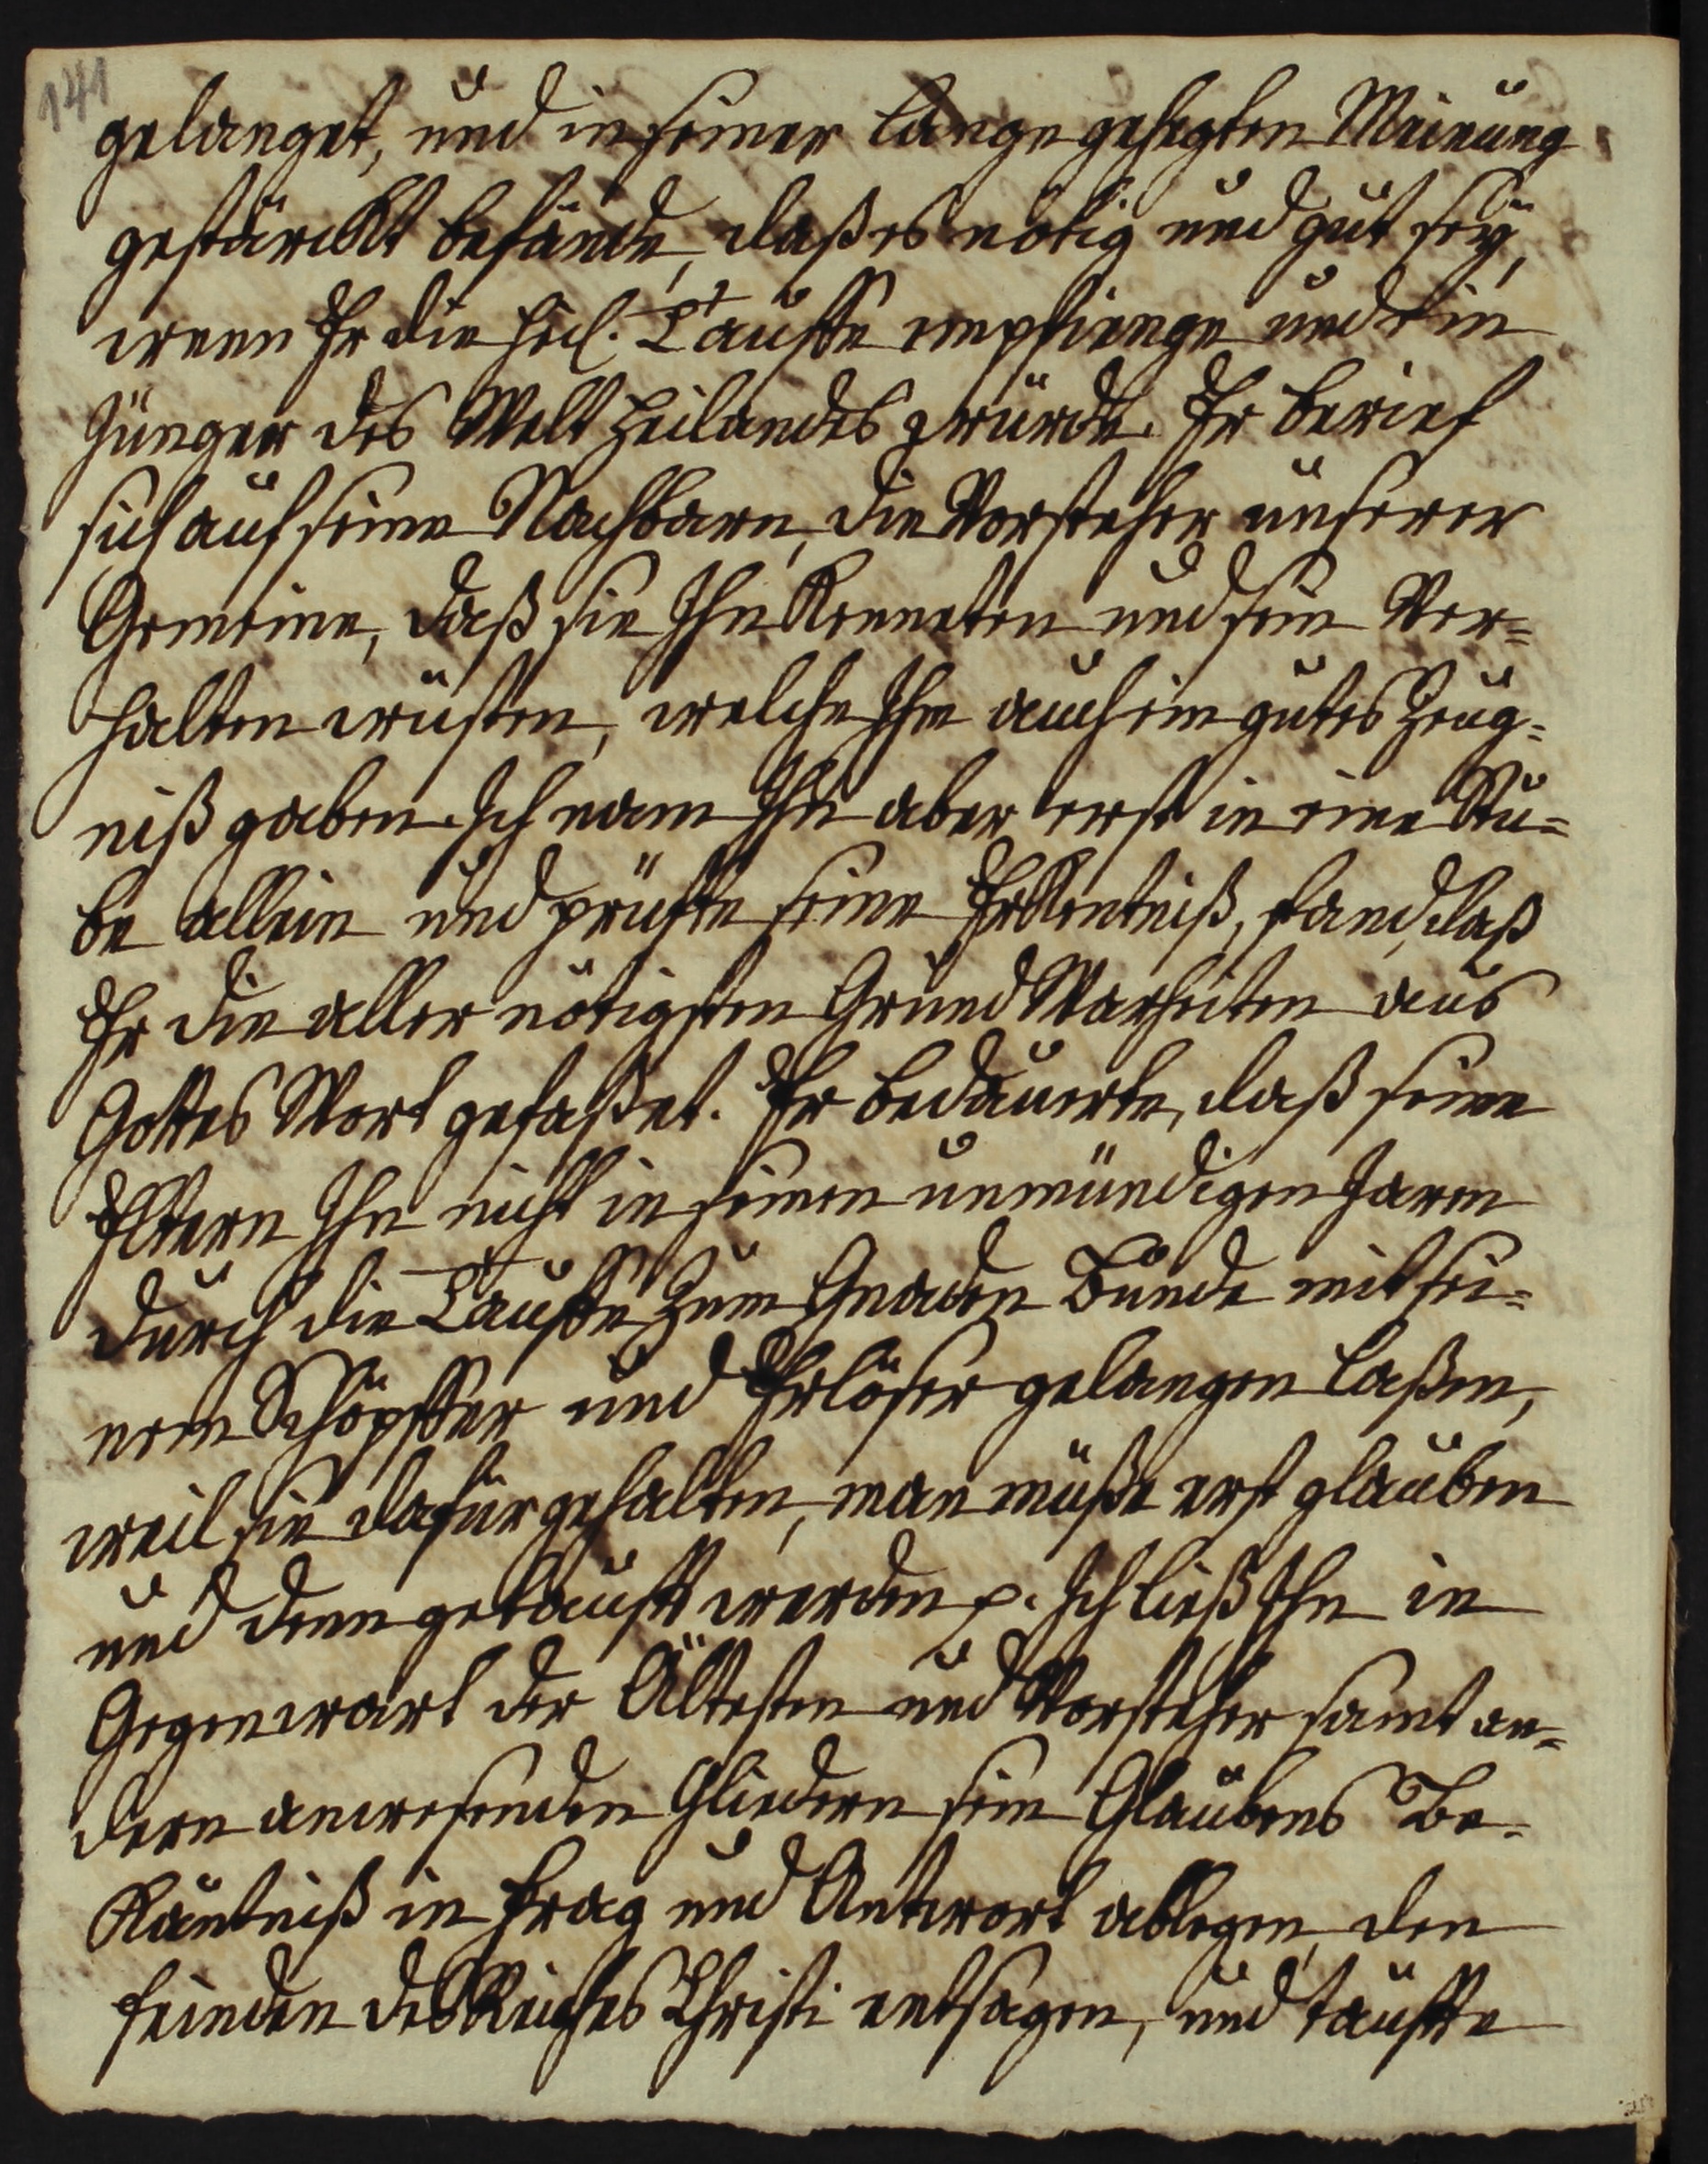 141
gelanget, und in seiner lange gehegten Meinung
gestärckt befände, daß es nötig und gut sey,
wenn Er die heil. Tauffe empfienge und ein
Jünger des Welt Heilandes würde. Er berief
sich auf seine Nachbarn, die Vorsteher unserer
Gemeine, daß sie Ihn Kenneten und sein Ver=
halten wüsten, welche Ihm auch ein gutes Zeug=
niß gaben. Ich nam Ihn aber erst in eine Stu=
be allein und prüfte seine Erkentniß, fand, daß
Er die aller nötigsten Grund Warheiten aus
Gottes Wort gefaßet. Er bedauerte, daß seine
Eltern Ihn nicht in seinen unmündigen Jaren
durch die Tauffe zum Gnaden Bunde mit sei=
nem Schöpffer und Erlöser gelangen laßen,
weil sie dafür gehalten, man müße erst glauben
und denn getauft werden p. Ich ließ Ihn in
Gegenwart der Ältesten und Vorsteher samt an=
dern anwesenden Gliedern sein Glaubens Be=
käntniß in Frag und Antwort ablegen, den
feinden des Reiches Christi entsagen, und tauffte